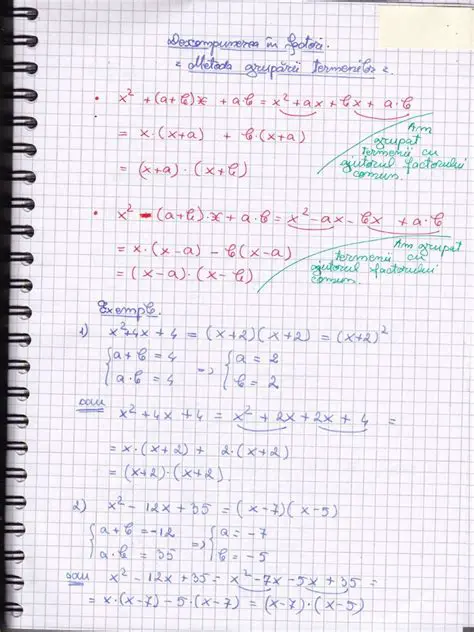 Descompunerea în factori.
"Metoda grupării termenilor".
• x² + (a+b)x + ab = x² + ax + bx + a·b
= x·(x+a) + b·(x+a)
= (x+a)·(x+b)
Am
grupat
termenii cu
ajutorul factorului
comun.
• x² - (a+b)·x + a·b = x² - ax - bx + a·b
= x·(x-a) - b(x-a)
= (x-a)·(x-b)
Am grupat
termenii cu
ajutorul factorului
comun.
Exemple.
1) x²+4x+4 = (x+2)(x+2) = (x+2)²
{a+b = 4 => {a = 2
{a·b = 4 {b = 2
sau x²+4x+4 = x²+2x+2x+4 =
= x·(x+2) + 2·(x+2)
= (x+2)·(x+2).
2) x² - 12x + 35 = (x-7)(x-5)
{a+b = -12 => {a = -7
{a·b = 35 {b = -5
sau x² - 12x + 35 = x² - 7x - 5x + 35 =
= x·(x-7) - 5·(x-7) = (x-7)·(x-5)